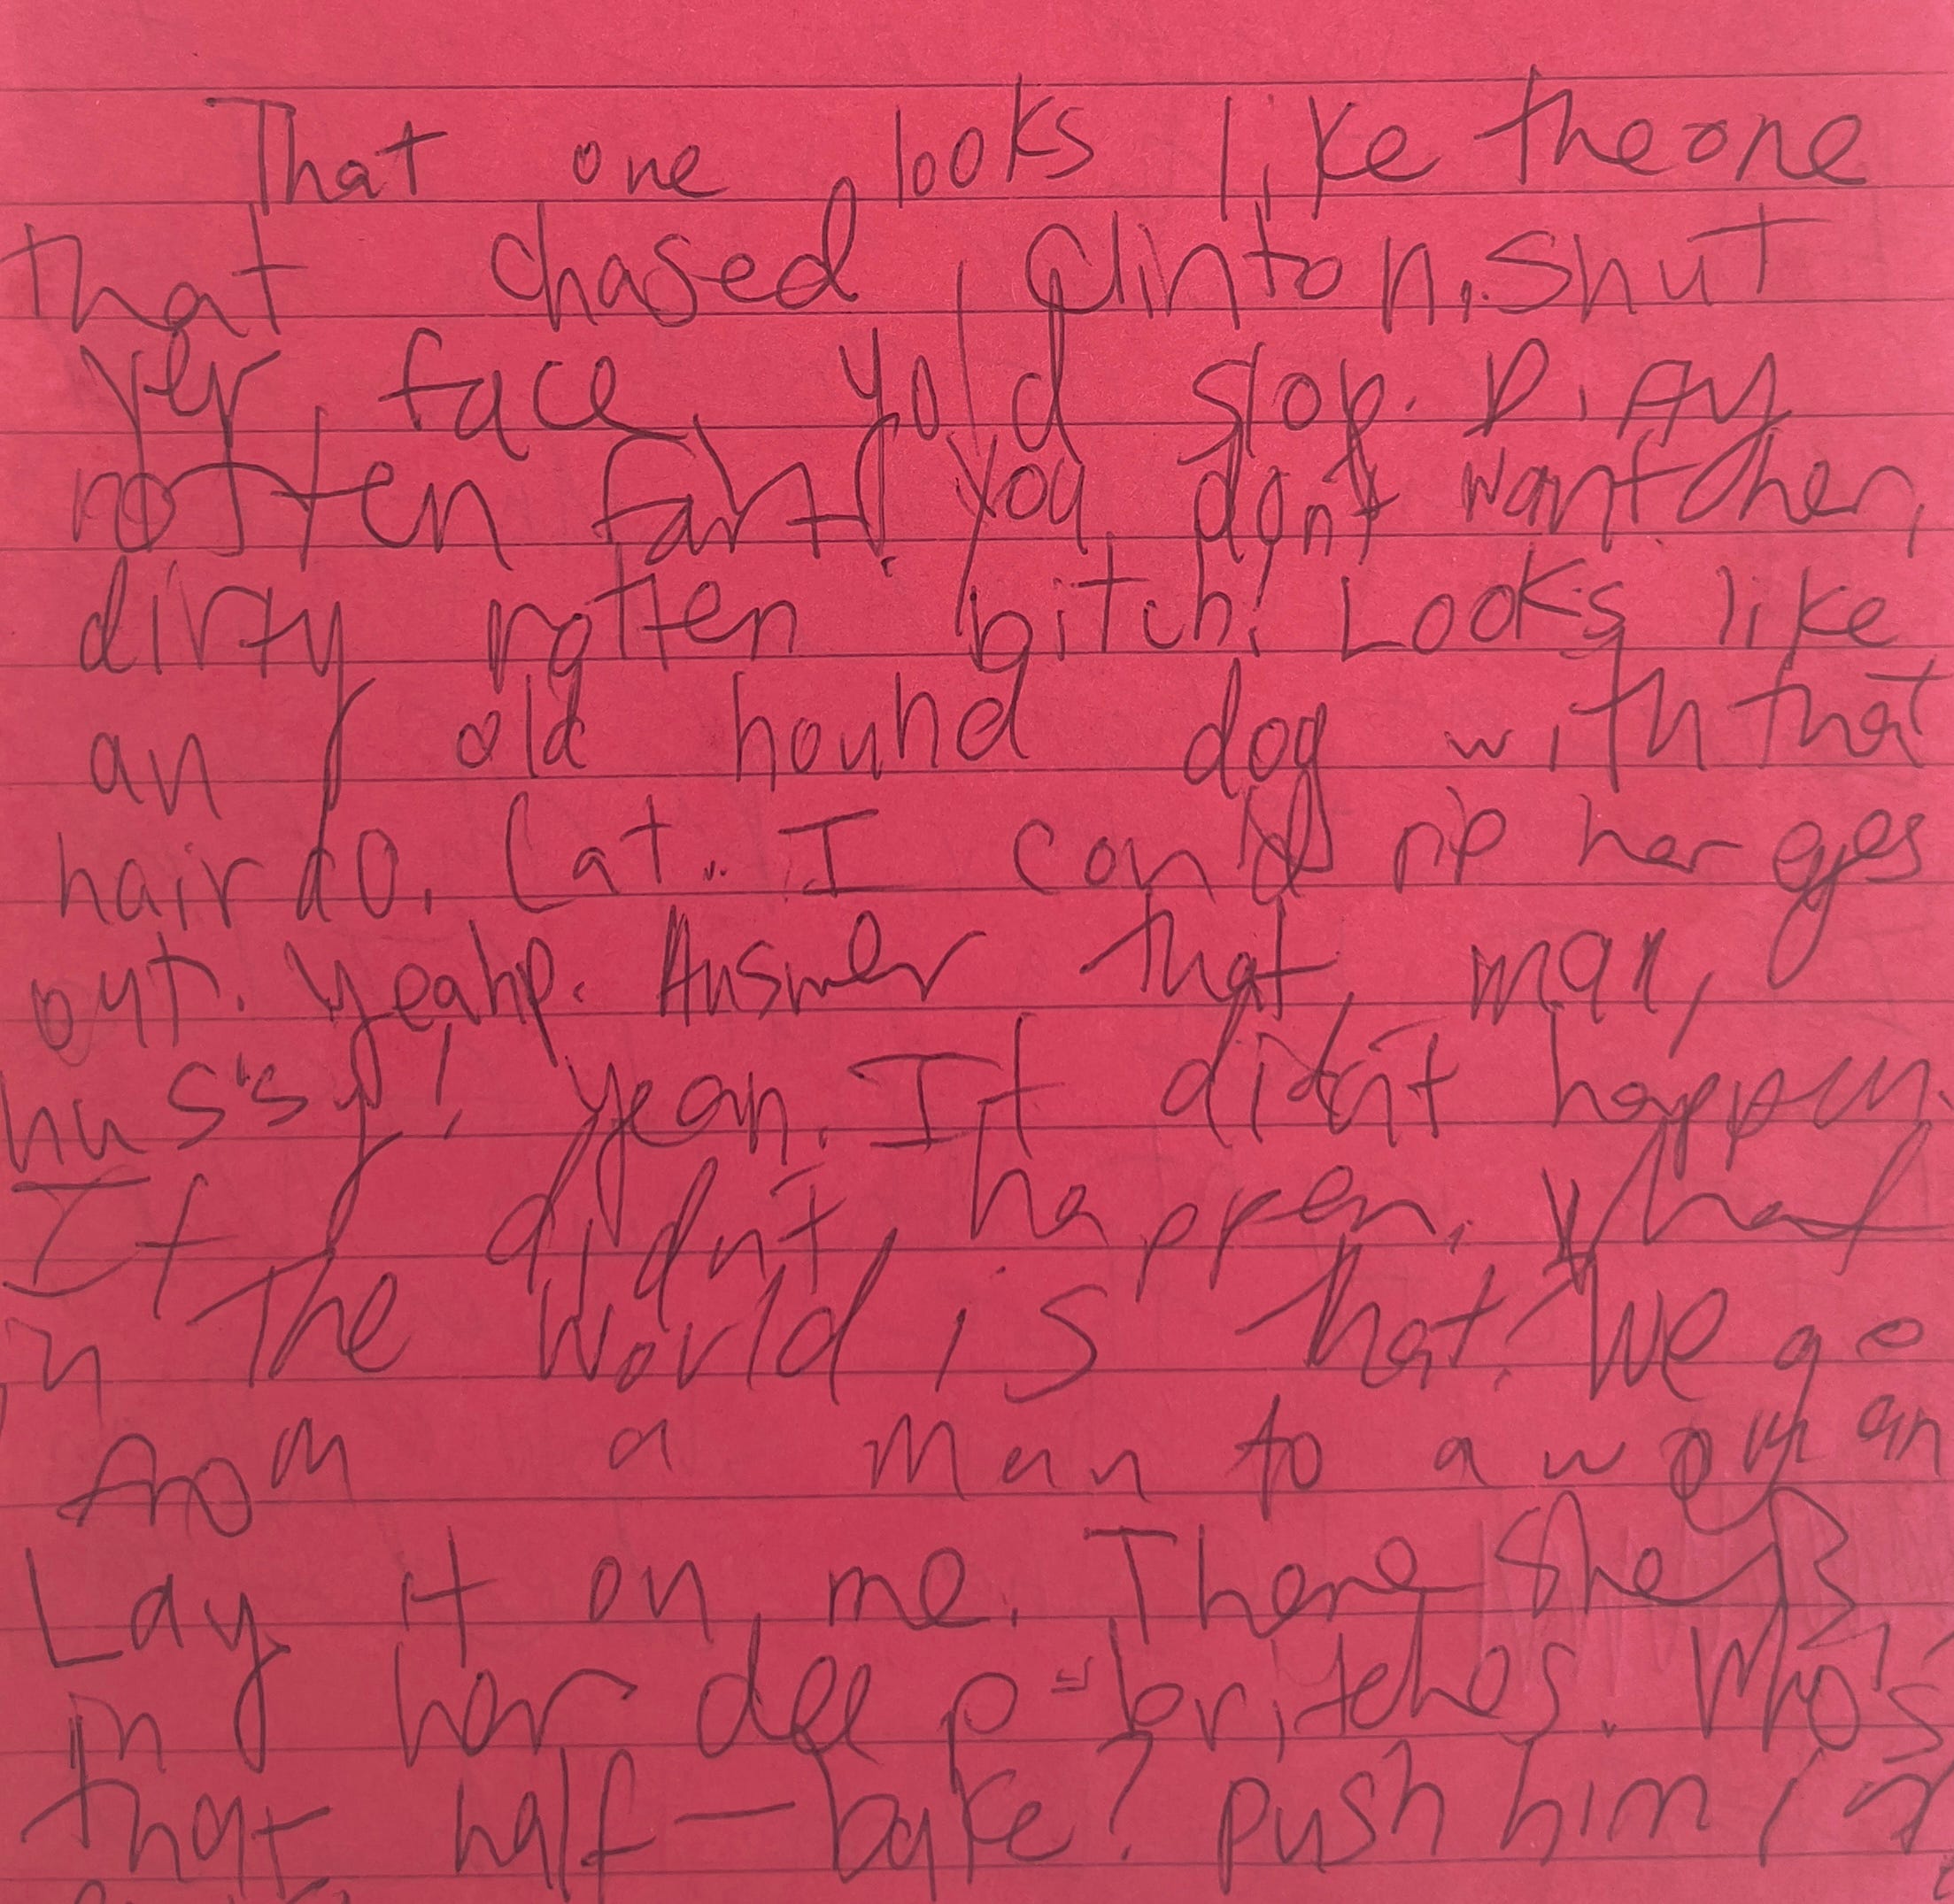 That one looks like the one
that chased Clinton. Shut
yer face, y old slop. Dirty
rotten fart! You don't want her,
dirty rotten bitch! Looks like
an old hound dog with that
hairdo. Cat. I could rip her eyes
out. Yeahp. Answer that, man,
hussy! Yeah. It didn't happen.
It didn't happen. What
in the world is that? We go
from a man to a woman
Lay it on me. There she is
in her deep-britches. Who's
that half-bake? Push him in